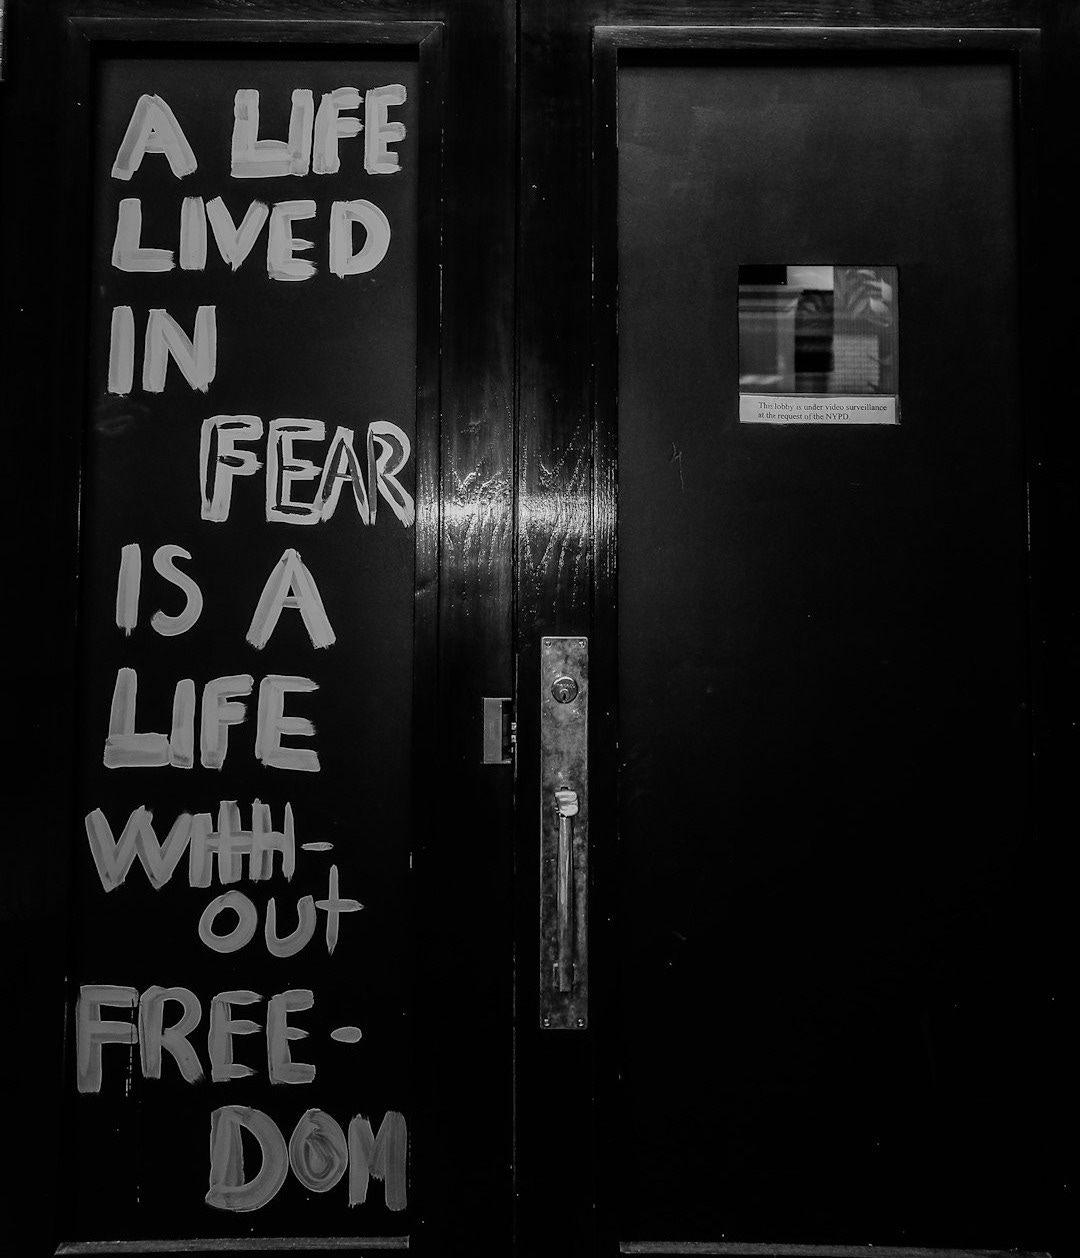 A LIFE
LIVED
IN
FEAR
IS A
LIFE
WITH-
OUt
FREE-
DOM
This lobby is under video surveillance
at the request of the NYPD.